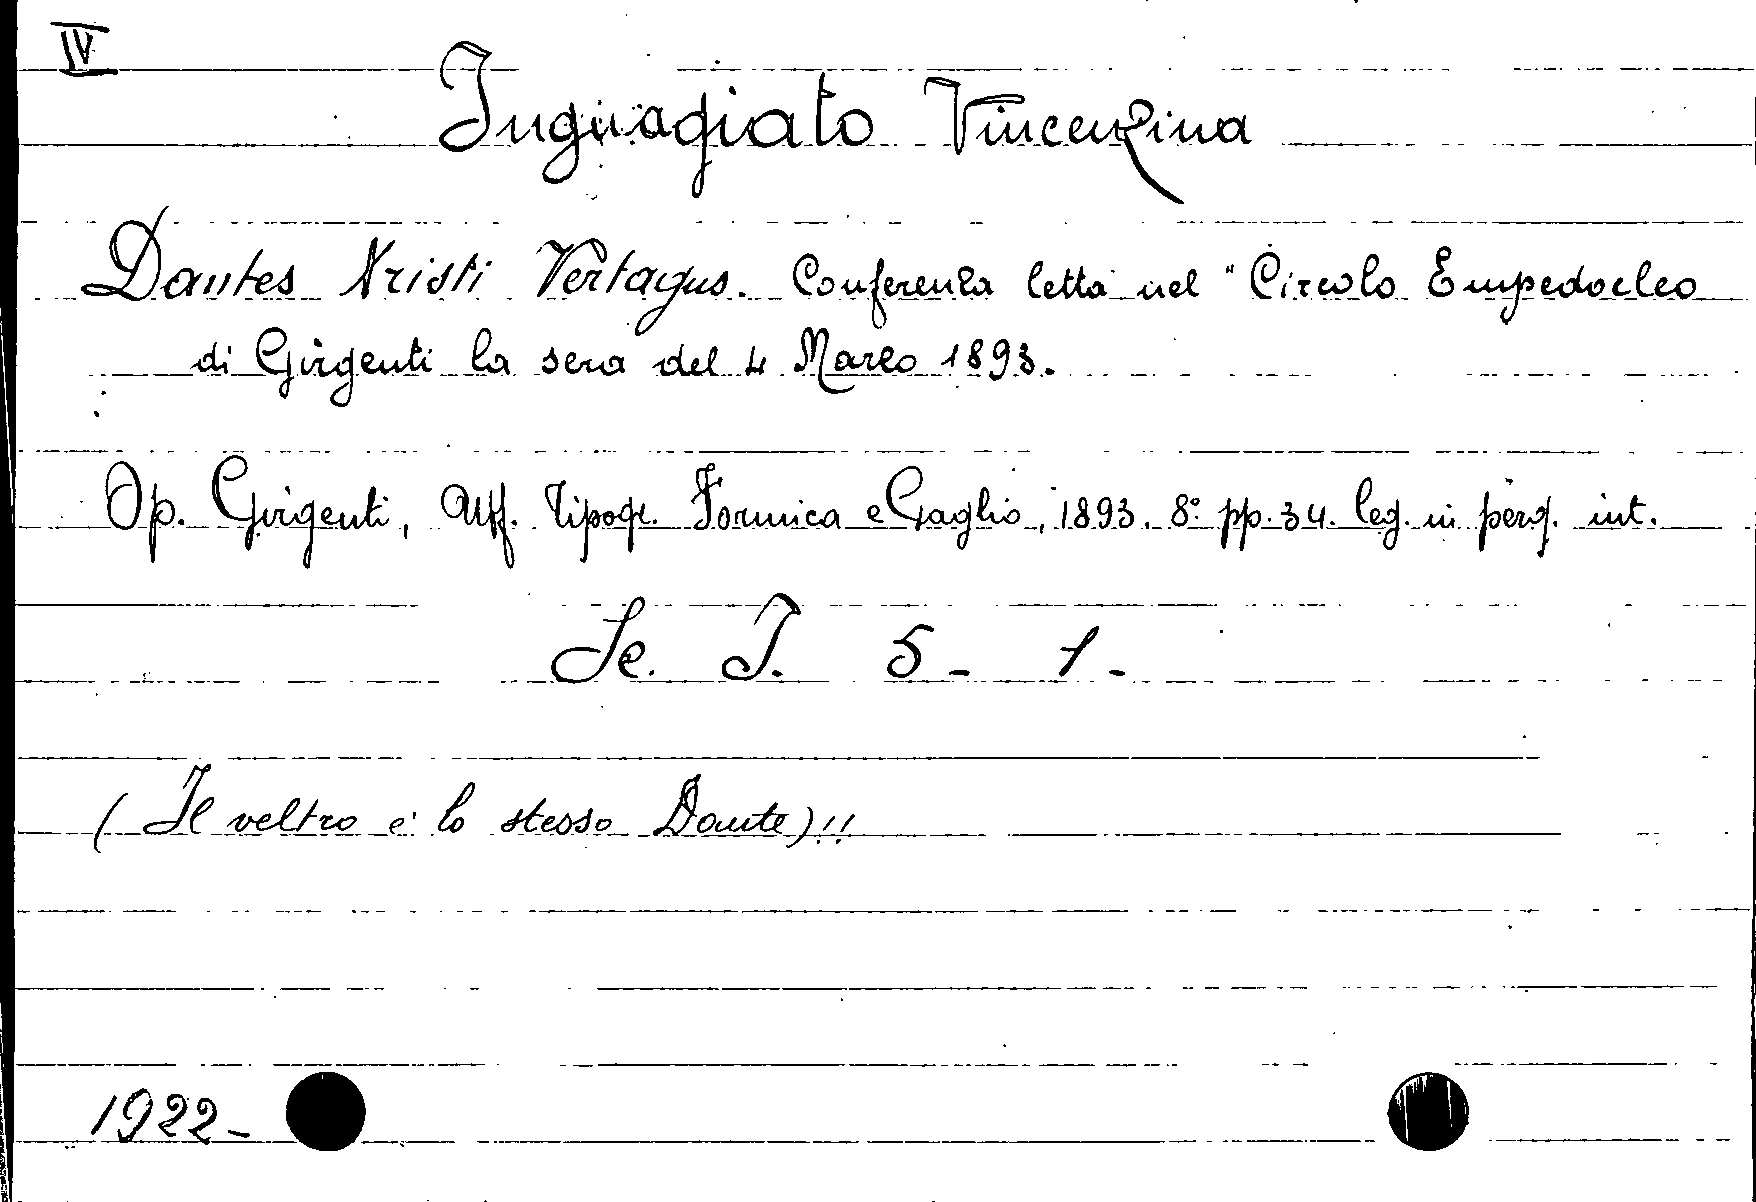 IV
Inguagiato Vincenzina
Dantes Kristi Vertagus. Conferenza letta nel "Circolo Empedocleo
di Girgenti la sera del 4 Marzo 1893.
Op. Girgenti, Uff. Tipogr. Formica e Gaglio, 1893. 8° pp. 34. leg. in perg. int.
Sc. I. 5 - 1 -
(Il veltro e' lo stesso Dante)!!
1922 -